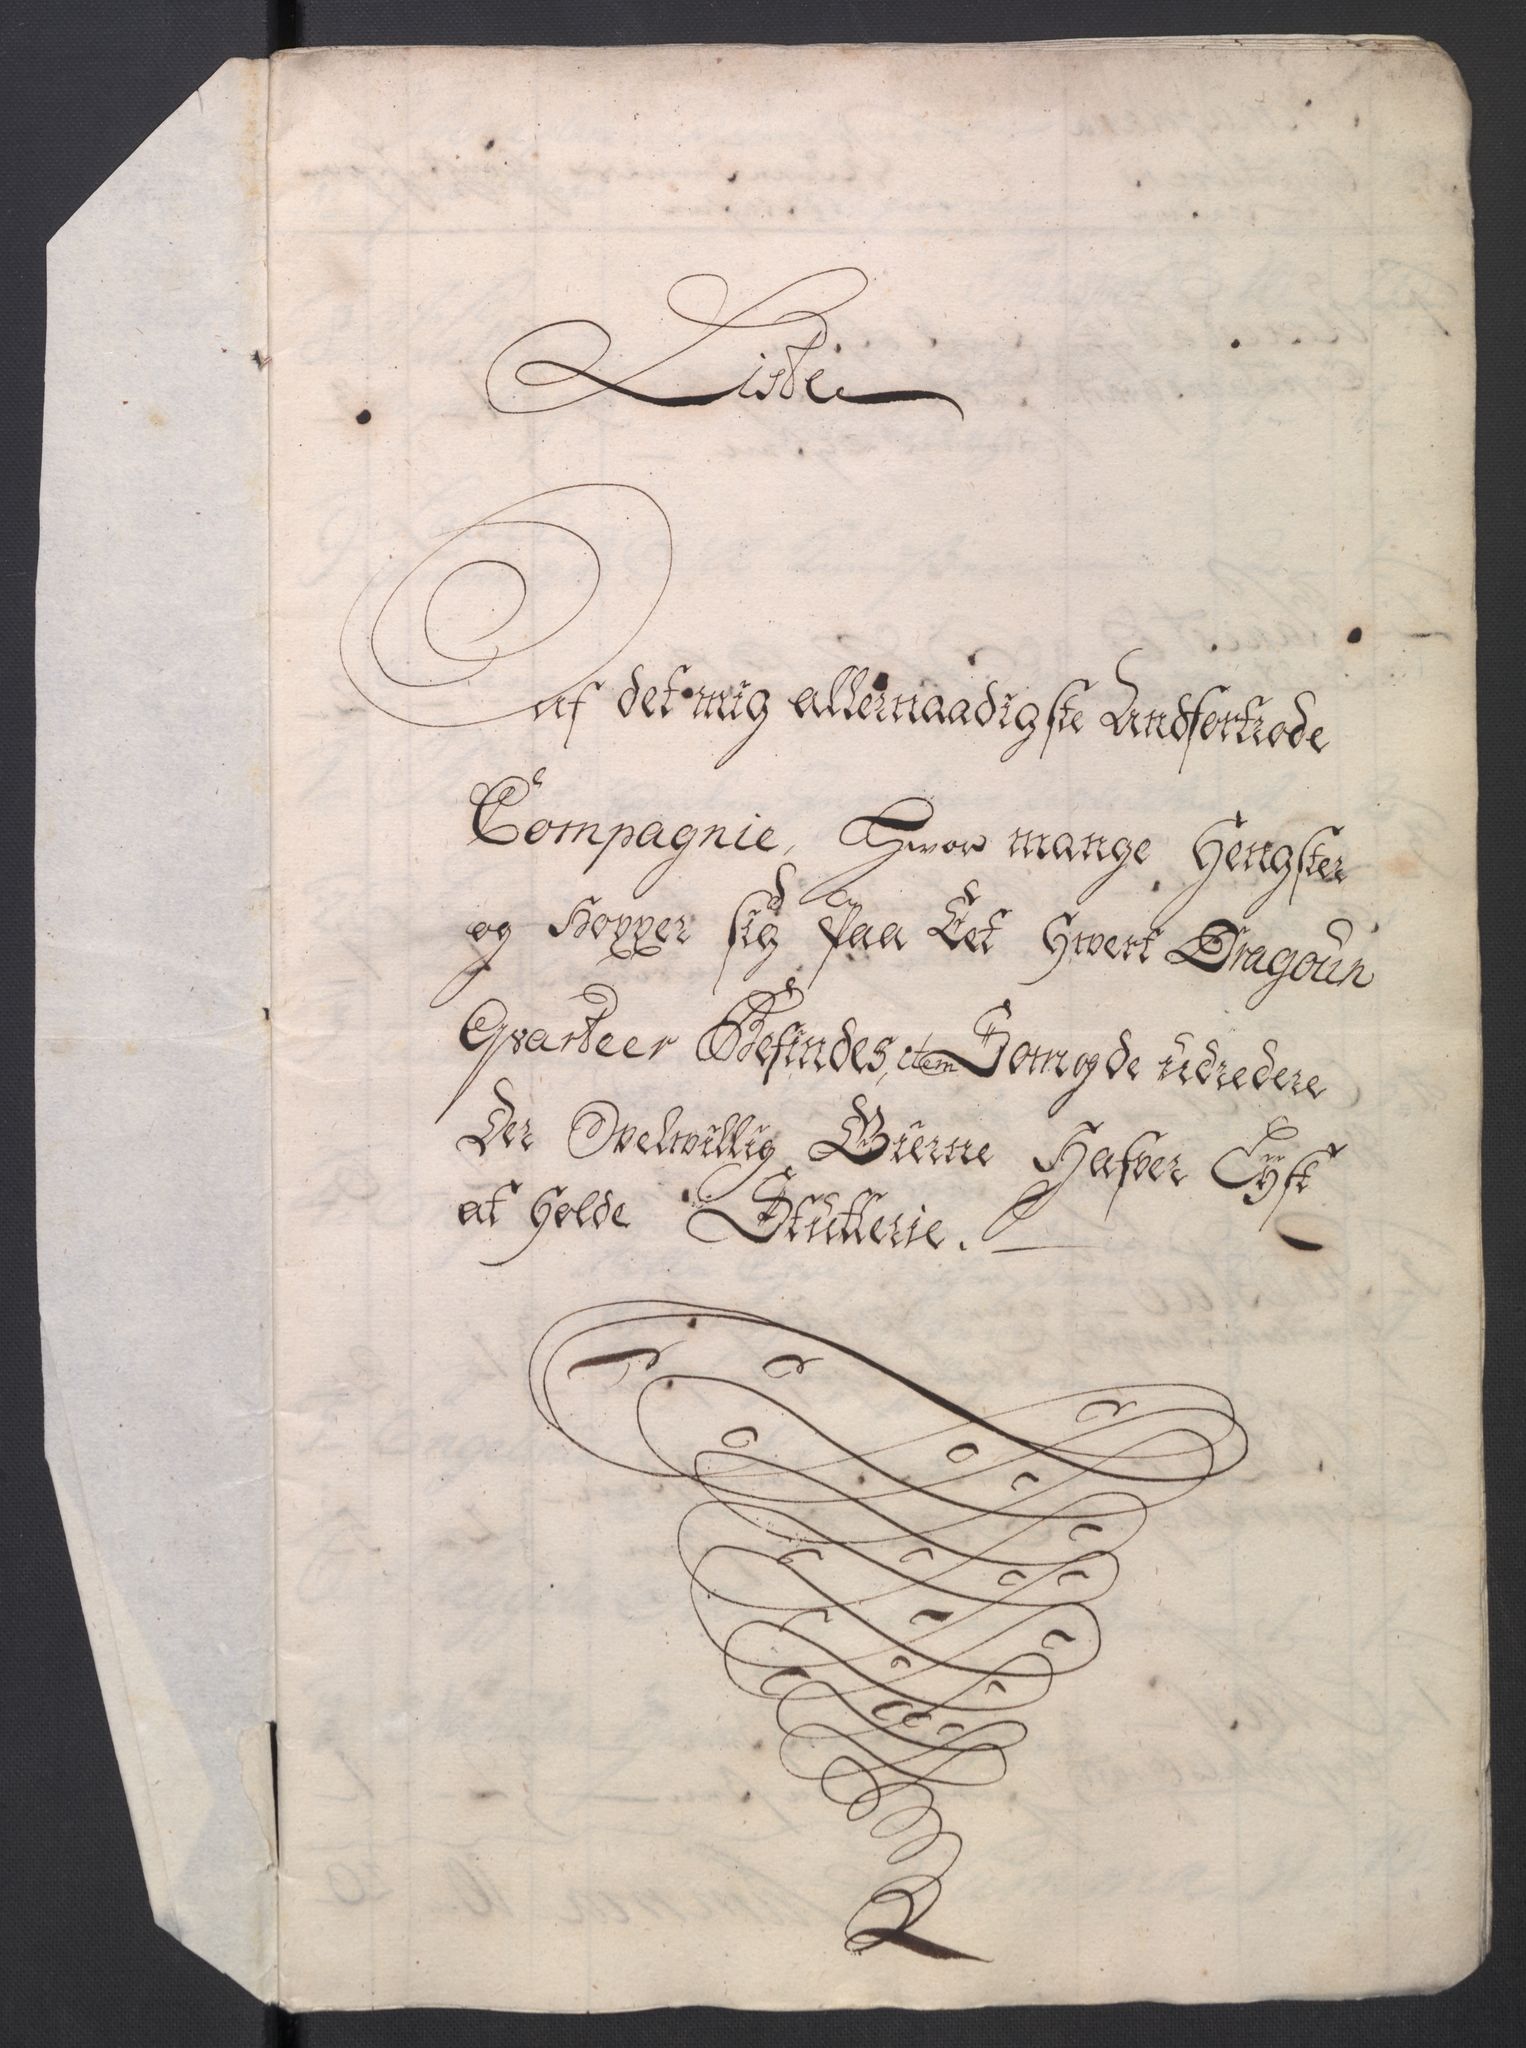 Liste
af det mig allernaadigste Andfortrode
Compagnie, Hvor mange Hengster
og Hopper sig paa Eet Hvert Dragoün
Qvarteer Befindes, item Som og de üdredere
Der Gierne Hafver Lyst
at Holde Stütterie.